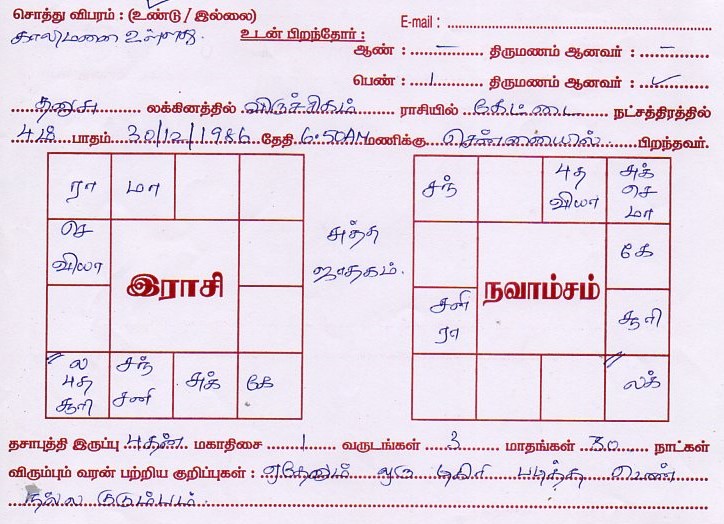 சொத்து விபரம் : (உண்டு / இல்லை)
E-mail :
காலிமனை உள்ளது. உடன் பிறந்தோர் :
ஆண் : – திருமணம் ஆனவர் : –
பெண் : 1 திருமணம் ஆனவர் : ✓
தனுசு லக்கினத்தில் விருச்சிகம் ராசியில் கேட்டை நட்சத்திரத்தில்
4ம் பாதம் 30/12/1986 தேதி 6:50AM மணிக்கு சென்னையில் பிறந்தவர்.
ரா மா
செ
வியா
இராசி
ல
புத
சூரி
சந்
சனி
சுக்
கே
சுத்த
ஜாதகம்.
சந்
புத
வியா
சுக்
செ
மா
கே
நவாம்சம்
சனி
ரா
சூரி
லக்
தசாபுத்தி இருப்பு புதன் மகாதிசை 1 வருடங்கள் 3 மாதங்கள் 30 நாட்கள்
விரும்பும் வரன் பற்றிய குறிப்புகள் : ஏதேனும் ஒரு டிகிரி படித்த பெண்
நல்ல குடும்பம்